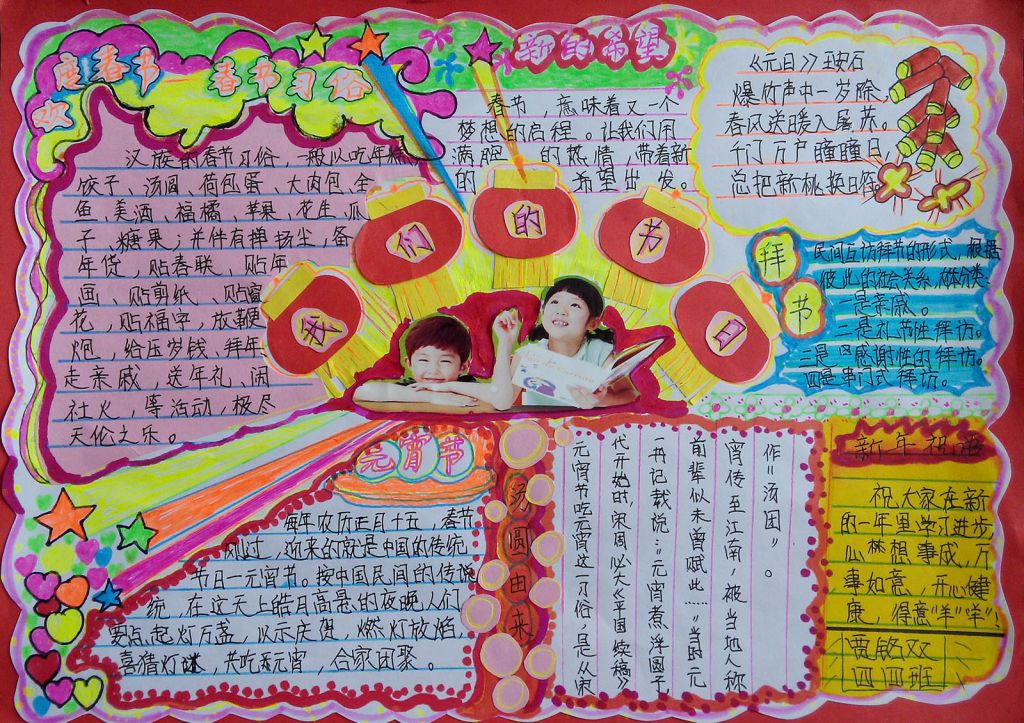 欢度春节
春节习俗
汉族的春节习俗，一般以吃年糕
饺子、汤圆、荷包蛋、大肉包、全
鱼、美酒、福橘、苹果、花生、瓜
子、糖果；并伴有掸扬尘，备
年货，贴春联、贴年
画、贴剪纸、贴窗
花，贴福字，放鞭
炮，给压岁钱、拜年
走亲戚，送年礼、闹
社火，等活动，极尽
天伦之乐。
新的希望
春节，意味着又一个
梦想的启程。让我们用
满腔的热情，带着新
的希望出发。
《元日》王安石
爆竹声中一岁除，
春风送暖入屠苏。
千门万户瞳瞳日，
总把新桃换旧符
我们的节日
拜节
民间互访拜节的形式，根据
彼此的社会关系，大体分类：
一是亲戚。
二是礼节性拜访。
三是感谢性的拜访。
四是串门式拜访。
元宵节
每年农历正月十五，春节
刚过，迎来的就是中国的传统
节日一元宵节。按中国民间的传说
统，在这天上皓月高悬的夜晚人们
要点起灯万盏，以示庆贺，燃灯放焰，
喜猜灯谜，共吃元宵，合家团聚。
汤圆由来
元宵节吃元宵这一习俗，是从宋
代开始时，宋周必大《平园续稿》
一书记载说："元宵煮浮圆子
前辈似未曾赋此……"当时元
宵传至江南，被当地人称
作"汤团"。
新年祝语
祝大家在新
的一年里学习进步，
心想事成，万
事如意，开心健
康，得意"羊""羊"，
贾铭双
四四班